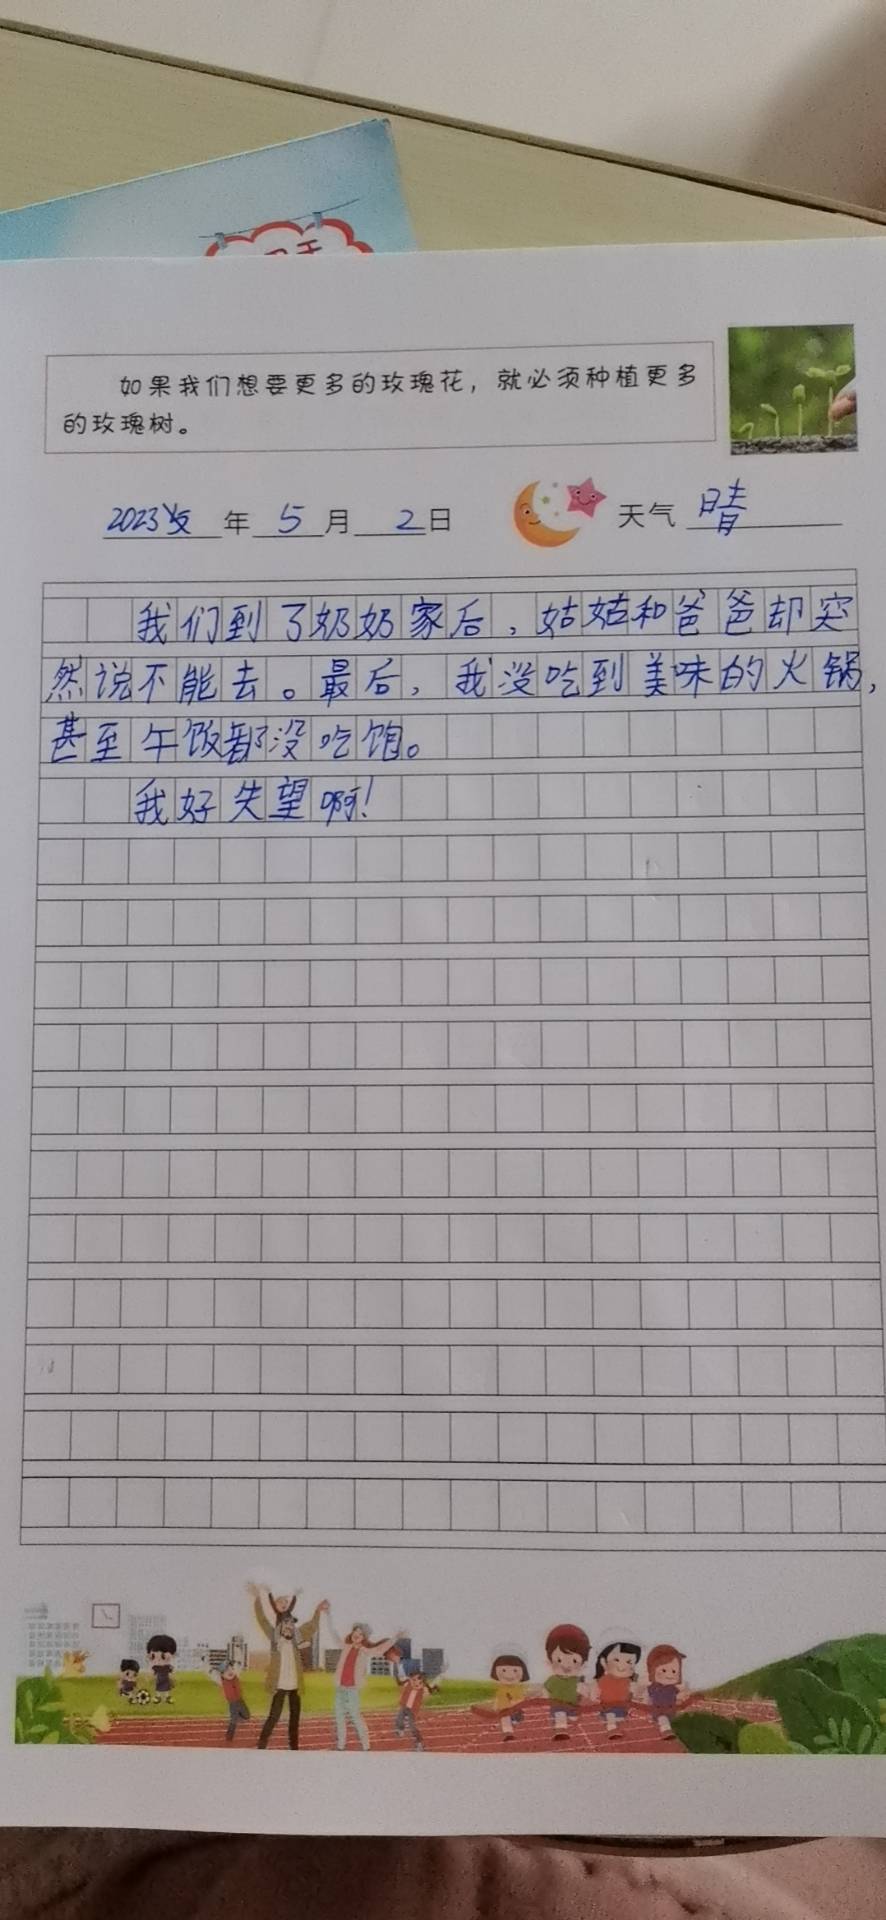 如果我们想要更多的玫瑰花，就必须种植更多
的玫瑰树。
2023 年 5 月 2 日 天气 晴
我们到了奶奶家后，姑姑和爸爸却突
然说不能去。最后，我没吃到美味的火锅，
甚至午饭都没吃饱。
我好失望啊！